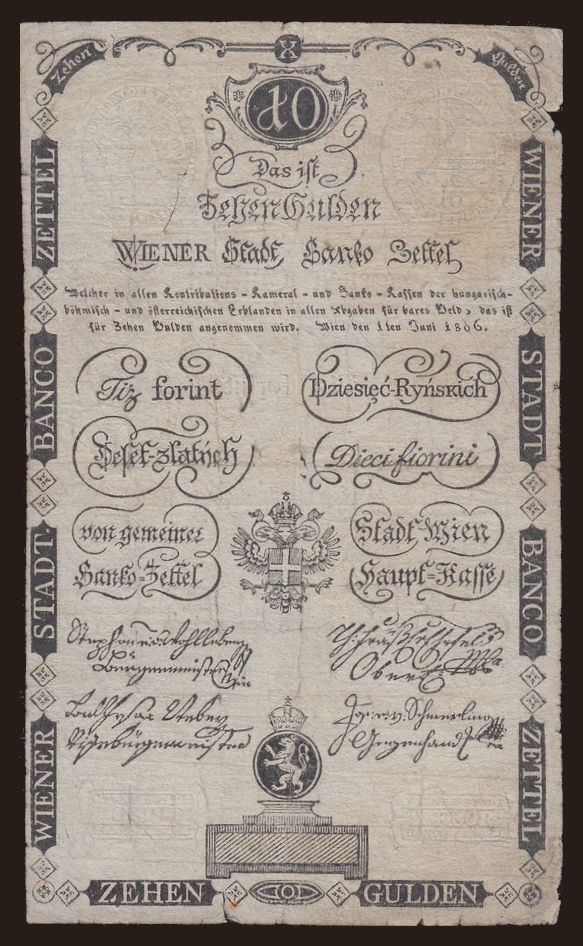 X
Zehen Gulden
10
Das ist
Zehen Gulden
WIENER Stadt Banko Zettel
Welcher in allen Kontributions - Kameral - und Banko - Kassen der hungarisch-
böhmisch - und österreichischen Erblanden in allen Abgaben für bares Geld, das ist
für Zehen Gulden angenommen wird. Wien den 1ten Juni 1806.
Tiz forint
Dziesięć-Ryńskich
Deset-zlatych
Dieci fiorini
von gemeiner
Stadt Wien
Banko-Zettel
Haupt-Kasse
Stephan
Burgermeister
Ober
Vizeburgermeister
Gegenhand
WIENER STADT BANCO ZETTEL
WIENER STADT BANCO ZETTEL
ZEHEN
GULDEN